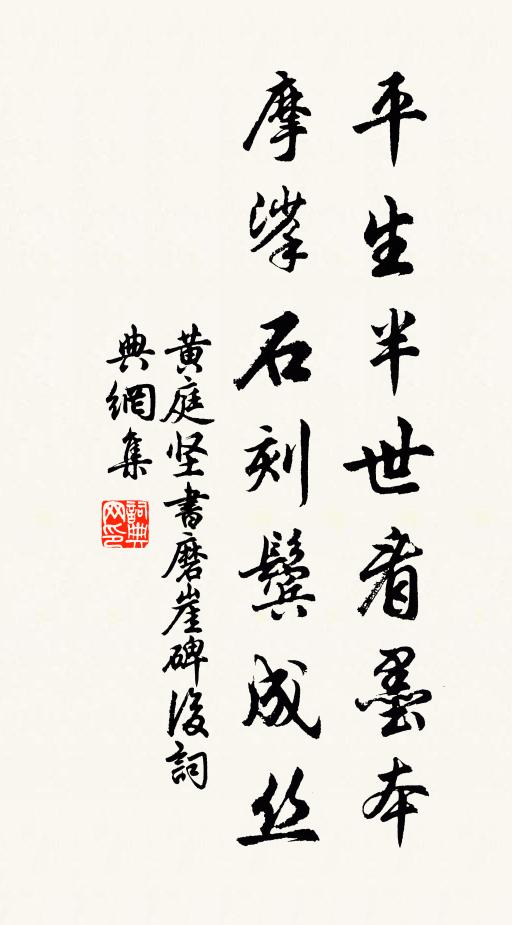 平生半世看墨本
摩挲石刻鬓成丝
黄庭坚书磨崖碑後詞
典網集
詞典网印